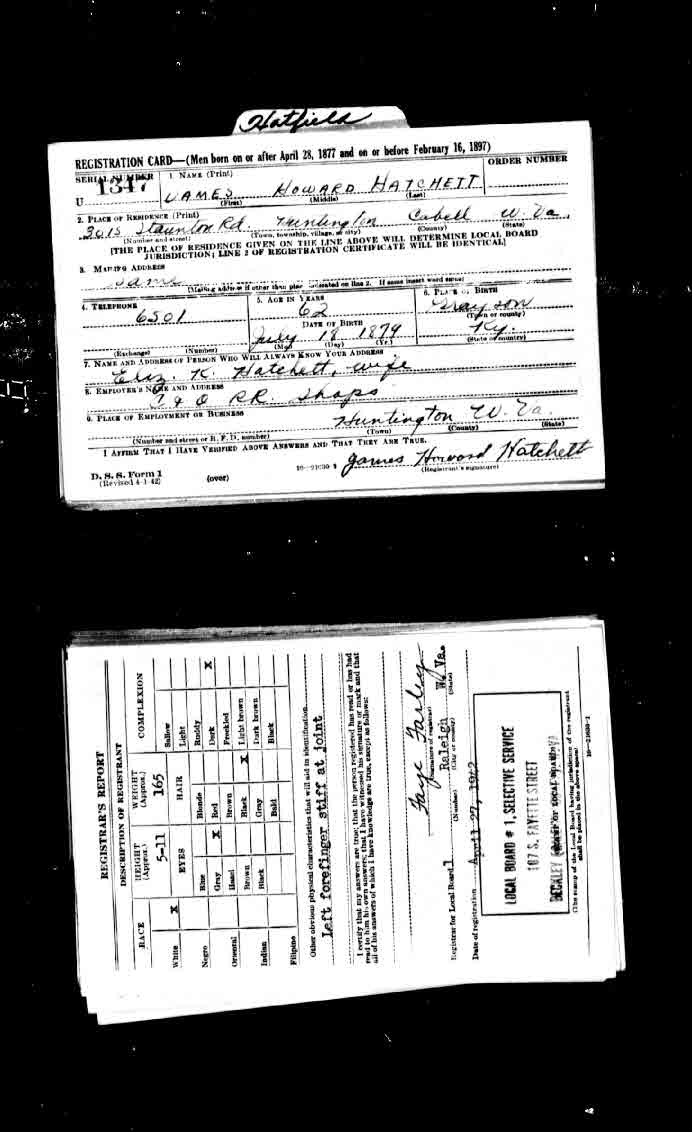 Hatfield
REGISTRATION CARD—(Men born on or after April 28, 1877 and on or before February 16, 1897)
SERIAL NUMBER 1. NAME (Print) ORDER NUMBER
U 1347 JAMES HOWARD HATCHETT
(First) (Middle) (Last)
2. PLACE OF RESIDENCE (Print)
3015 Staunton Rd. Huntington Cabell W. Va.
(Number and street) (Town, township, village, or city) (County) (State)
[THE PLACE OF RESIDENCE GIVEN ON THE LINE ABOVE WILL DETERMINE LOCAL BOARD
JURISDICTION; LINE 2 OF REGISTRATION CERTIFICATE WILL BE IDENTICAL]
3. MAILING ADDRESS
Same
[Mailing address if other than place indicated on line 2. If same insert word same]
4. TELEPHONE 5. AGE IN YEARS 6. PLACE OF BIRTH
6501 62 Grayson
DATE OF BIRTH (Town or county)
July 18 1879 Ky.
(Exchange) (Number) (Mo.) (Day) (Yr.) (State or country)
7. NAME AND ADDRESS OF PERSON WHO WILL ALWAYS KNOW YOUR ADDRESS
Eliz. K. Hatchett, wife
8. EMPLOYER'S NAME AND ADDRESS
C & O RR. Shops
9. PLACE OF EMPLOYMENT OR BUSINESS
Huntington W. Va.
(Number and street or R. F. D. number) (Town) (County) (State)
I AFFIRM THAT I HAVE VERIFIED ABOVE ANSWERS AND THAT THEY ARE TRUE.
James Howard Hatchett
D. S. S. Form 1
(Revised 4-1-42) (over) 16—21630-1 (Registrant's signature)
REGISTRAR'S REPORT
DESCRIPTION OF REGISTRANT
RACE HEIGHT (Approx.) WEIGHT (Approx.) COMPLEXION
5-11 165
EYES HAIR
White X Sallow
Light
Negro Blue Blonde Ruddy
Gray X Red Dark X
Oriental Hazel Brown Freckled
Brown Black X Light brown
Indian Black Gray Dark brown
Bald Black
Filipino
Other obvious physical characteristics that will aid in identification
Left forefinger stiff at joint
I certify that my answers are true; that the person registered has read or has had
read to him his own answers; that I have witnessed his signature or mark and that
all of his answers of which I have knowledge are true, except as follows:
Faye Farley
(Signature of registrar)
Registrar for Local Board 1 Raleigh W. Va.
(Number) (City or county) (State)
Date of registration April 27, 1942
LOCAL BOARD # 1, SELECTIVE SERVICE
107 S. FAYETTE STREET
(The stamp of the Local Board having jurisdiction of the registrant
shall be placed in the above space)
16—21630-1